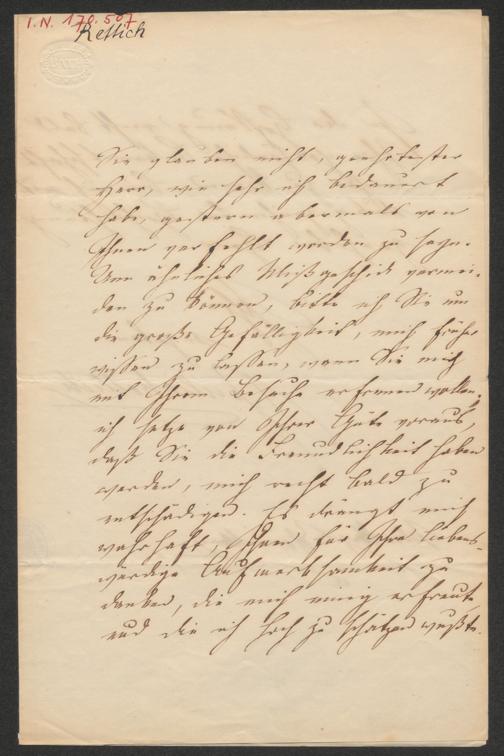 I.N. 170.507
Rettich
Sie glauben nicht, geehrtester
Herr, wie sehr ich bedauert
habe, gestern abermals von
Ihnen verfehlt worden zu seyn.
Um ähnliches Mißgeschick vermei-
den zu können, bitte ich Sie um
die große Gefälligkeit, mich früher
wissen zu lassen, wann Sie mich
mit Ihrem Besuche erfreuen wollen.
ich setze von Ihrer Güte voraus,
daß Sie die Freundlichkeit haben
werden, mich recht bald zu
entschädigen. Es drängt mich
wahrhaft Ihnen für Ihre liebens-
würdige Aufmerksamkeit zu
danken, die mich innig erfreute
und die ich hoch zu schätzen wußte.